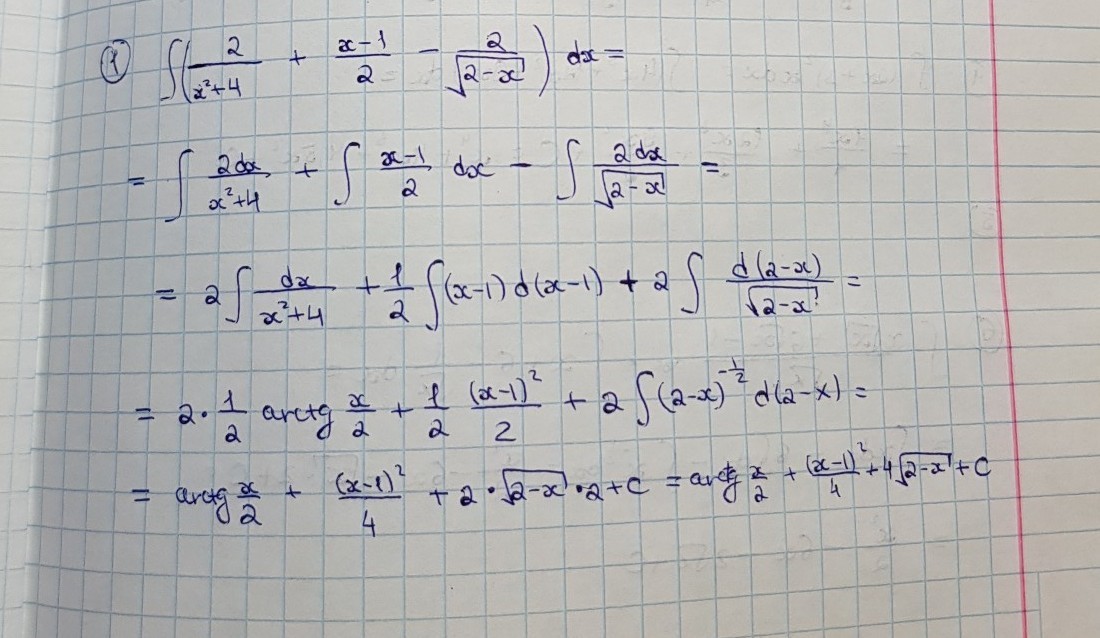 ① ∫(2/(x²+4) + (x-1)/2 - 2/√(2-x)) dx =
= ∫ 2dx/(x²+4) + ∫ (x-1)/2 dx - ∫ 2dx/√(2-x) =
= 2∫ dx/(x²+4) + 1/2 ∫(x-1) d(x-1) + 2 ∫ d(2-x)/√(2-x) =
= 2·1/2 arctg x/2 + 1/2 (x-1)²/2 + 2 ∫(2-x)^(-1/2) d(2-x) =
= arctg x/2 + (x-1)²/4 + 2·√(2-x)·2+C = arctg x/2 + (x-1)²/4 + 4√(2-x) + C